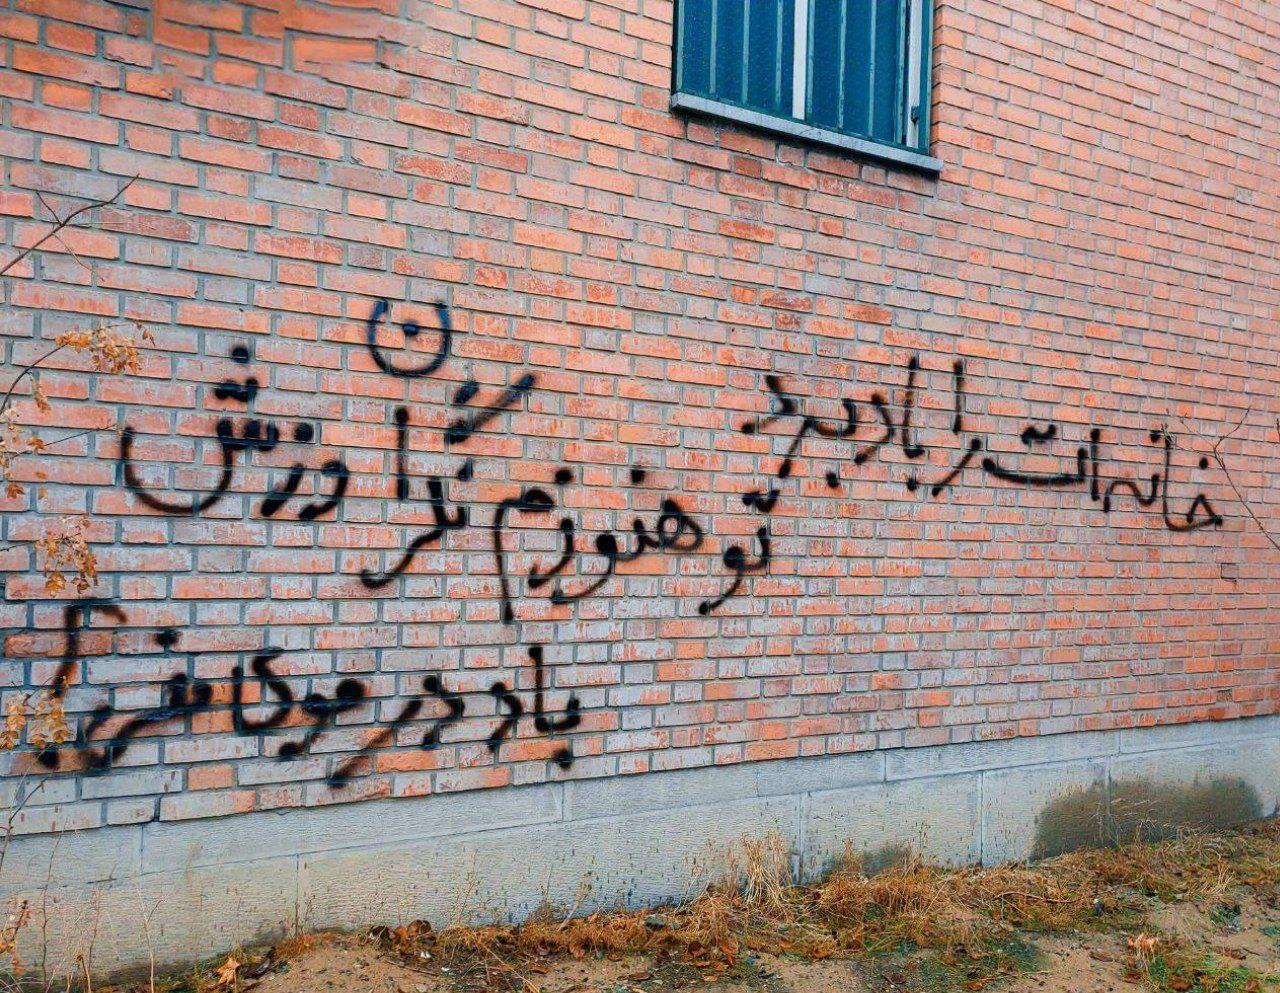 خانه ات را باد برد
تو هنوزم نگران وزش
باد در موی کافری؟